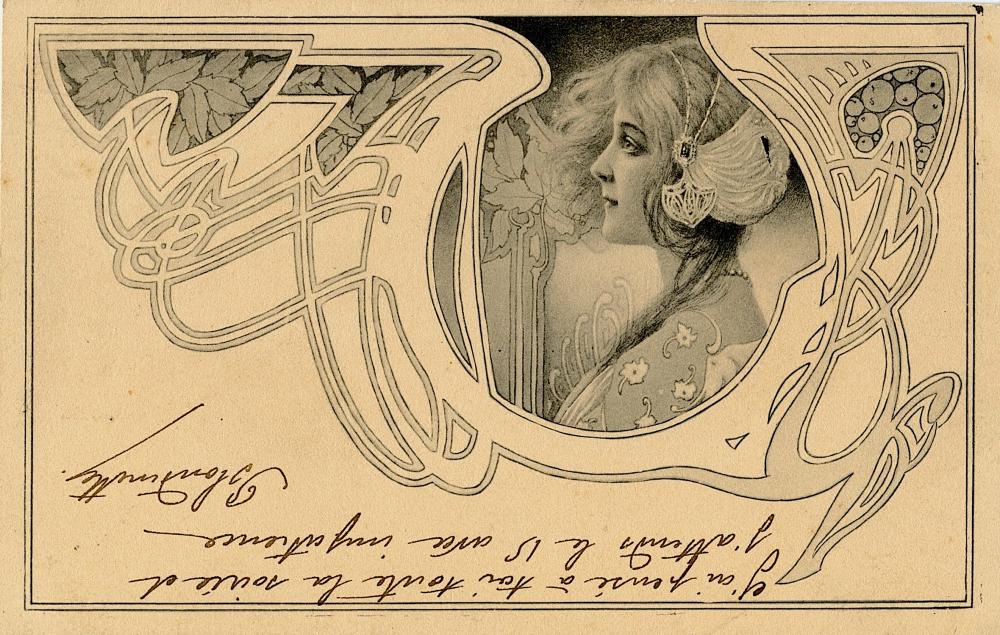 J'ai pensé à toi toute la soirée et
j'attends le 15 avec impatience
Blondinette.